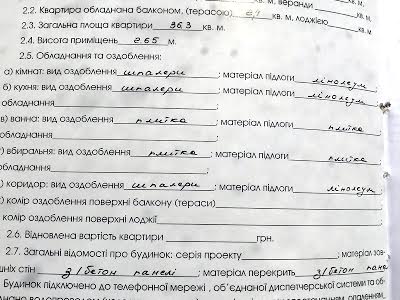 кв. м, веранди кв. м.
2.2. Квартира обладнана балконом, (терасою) кв. м, лоджією кв. м.
2.3. Загальна площа квартири 36.3 кв. м.
2.4. Висота приміщень 2.65 м.
2.5. Обладнання та оздоблення:
а) кімнат: вид оздоблення шпалери ; матеріал підлоги лінолеум ;
б) кухня: вид оздоблення шпалери ; матеріал підлоги лінолеум
обладнання ;
в) ванна: вид оздоблення плитка ; матеріал підлоги плитка
обладнання ;
г) вбиральня: вид оздоблення плитка ; матеріал підлоги плитка
обладнання ;
) коридор: вид оздоблення шпалери ; матеріал підлоги лінолеум ;
) колір оздоблення поверхні балкону (тераси)
колір оздоблення поверхні лоджії
2.6. Відновлена вартість квартири грн.
2.7. Загальні відомості про будинок: серія проекту ; матеріал зов-
нішніх стін з/бетон панелі ; матеріал перекрить з/бетон пане
Будинок підключено до телефонної мережі , об'єднаної диспетчерської системи та об-